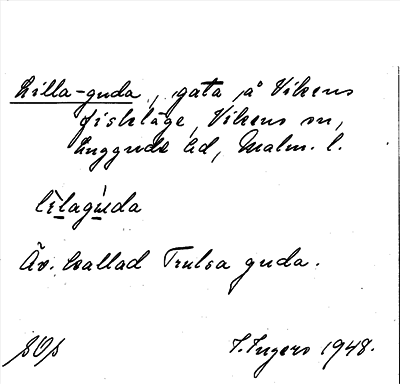 Lilla-guda, gata å Vikens
fiskläge, Vikens sn,
Luggude hd, Malm. l.
lìlagúda
Äv. kallad Trulsa guda.
I. Ingers 1948.